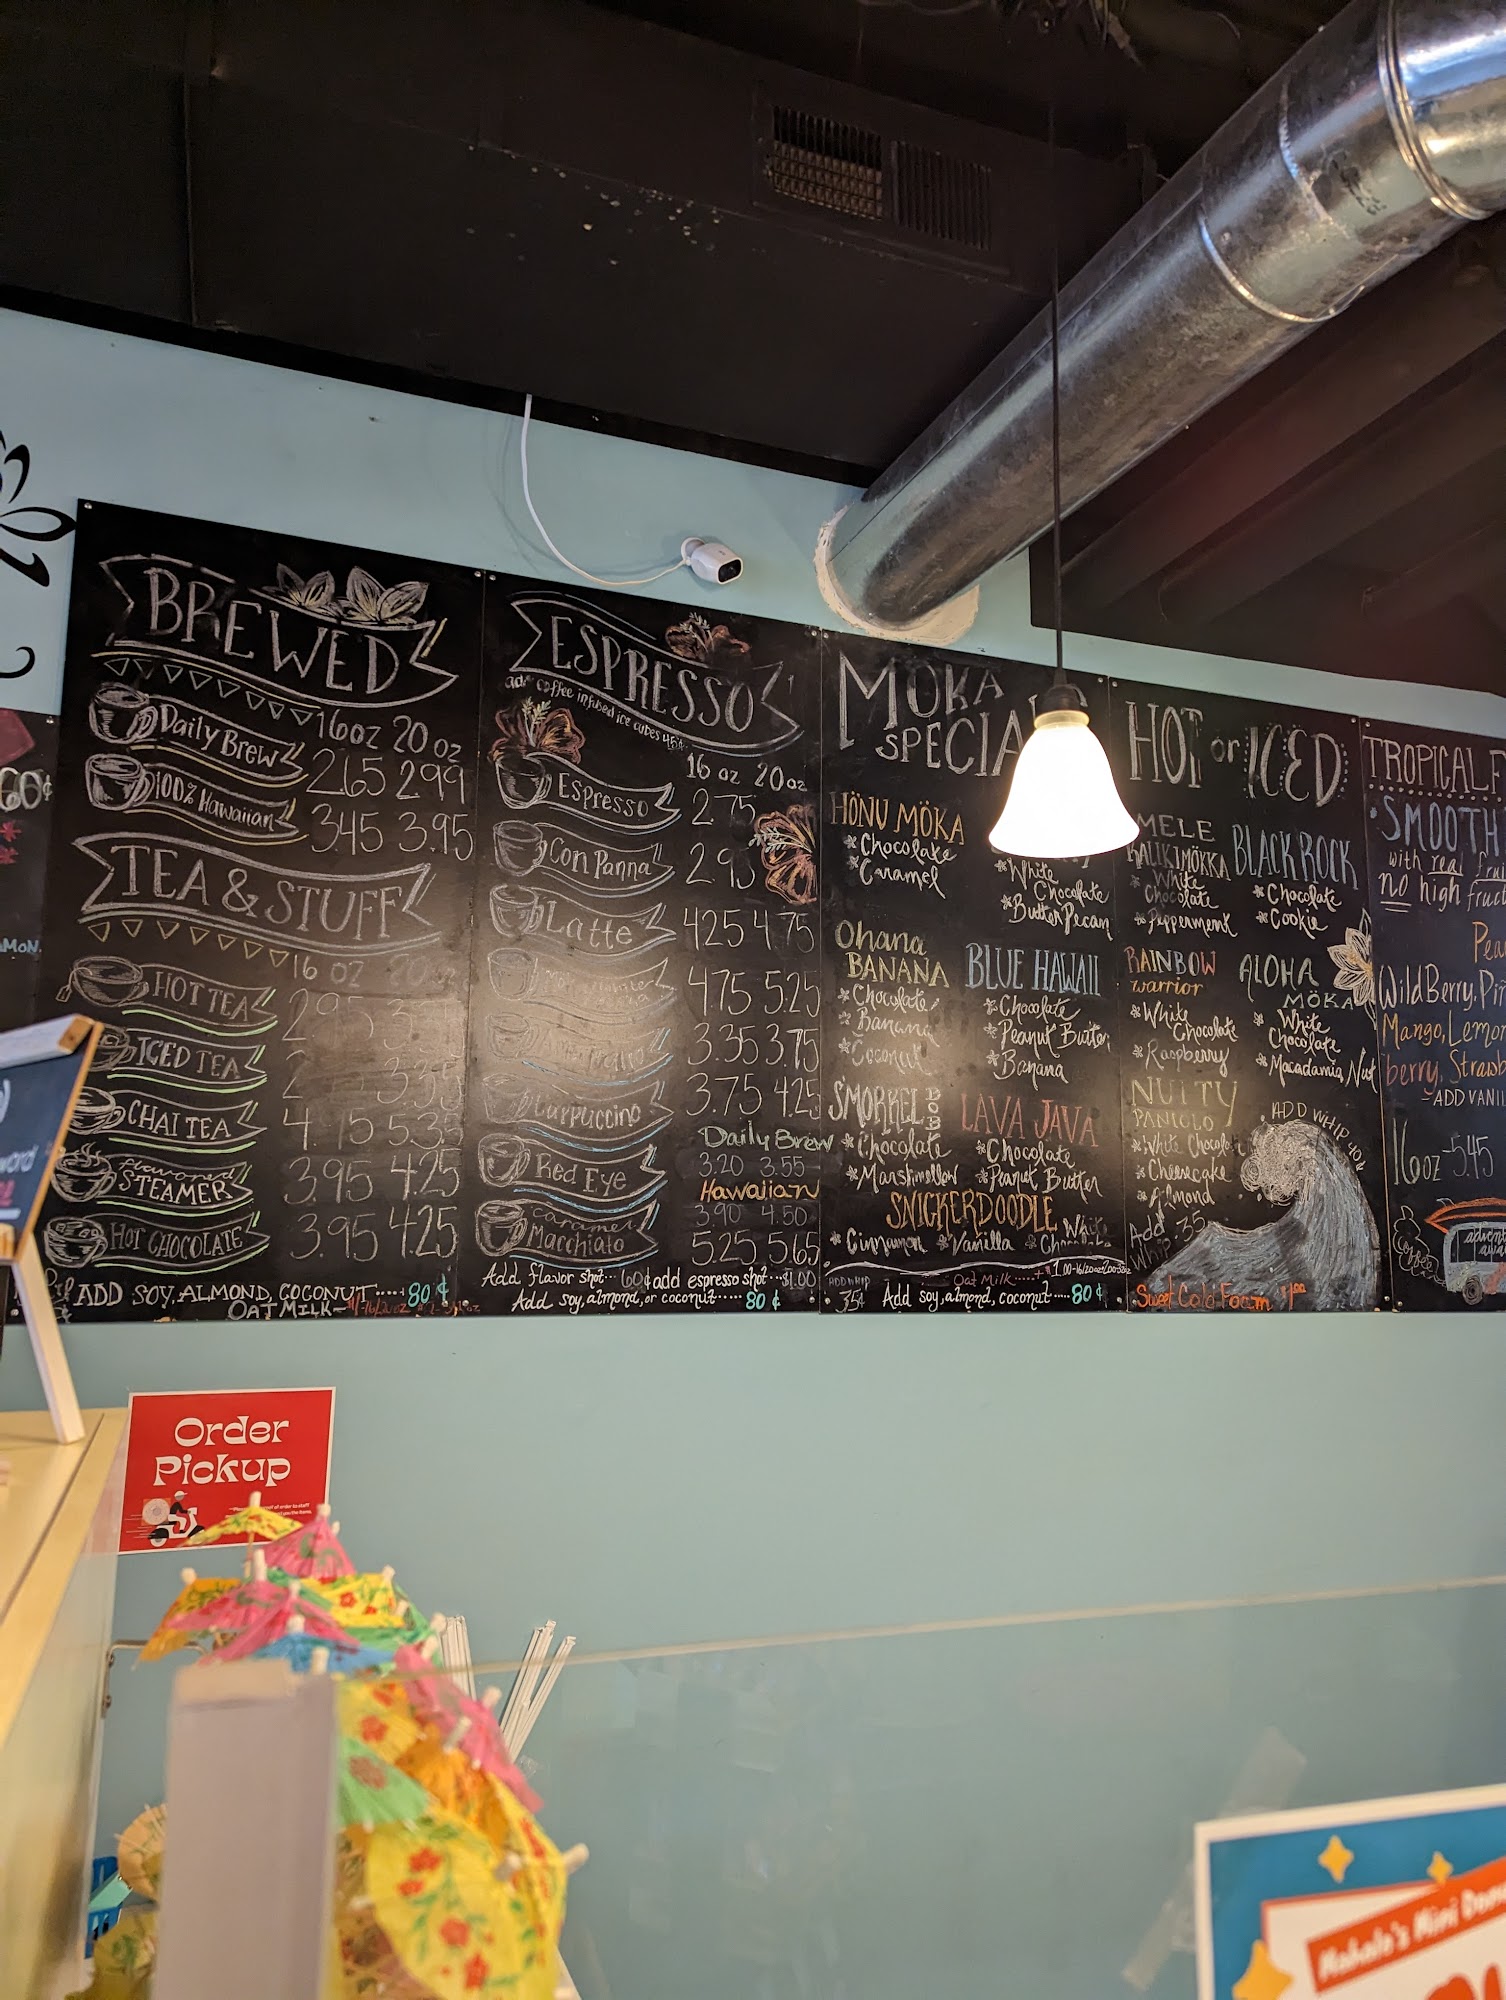 BREWED
16oz 20oz
Daily Brew 2.65 2.99
100% Hawaiian 3.45 3.95
TEA & STUFF
16 OZ 20 OZ
HOT TEA 2.95
ICED TEA 3.35
CHAI TEA 4.95 5.35
flavored STEAMER 3.95 4.25
HOT CHOCOLATE 3.95 4.25
ADD SOY, ALMOND, COCONUT.....80¢
OAT MILK
ESPRESSO
add coffee infused ice cubes 45¢
16 oz 20oz
Espresso 2.75
Con Panna 2.95
Latte 4.25 4.75
4.75 5.25
3.35 3.75
3.75 4.25
Daily Brew
Red Eye 3.20 3.55
Hawaiian
3.90 4.50
Caramel Macchiato 5.25 5.65
Add flavor shot... 60¢ add espresso shot...$1.00
Add soy, almond, or coconut.....80¢
MOKA
SPECIA
HÖNU MÖKA
Chocolate
Caramel
White
Chocolate
Butter Pecan
Ohana
BANANA
Chocolate
Banana
Coconut
BLUE HAWAII
Chocolate
Peanut Butter
Banana
SMORKEL BOB
Chocolate
Marshmellow
LAVA JAVA
Chocolate
Peanut Butter
SNICKERDOODLE
Cinnamon Vanilla White Chocolate
ADD WHIP
35¢
Oat Milk
Add soy, almond, coconut.....80¢
HOT or ICED
MELE
KALIKIMÖKKA
White
Chocolate
Pepperment
BLACK ROCK
Chocolate
Cookie
RAINBOW
warrior
White
Chocolate
Raspberry
ALOHA
MÖKA
White
Chocolate
Macadamia Nut
NUTTY
PANIOLO
White Chocolate
Cheesecake
Almond
ADD WHIP 40¢
Add .35
Whip
Sweet Cold Foam
TROPICAL F
SMOOTH
with real fru
no high fruct
Pea
WildBerry, Pi
Mango, Lemon
berry, Strawb
ADD VANIL
16oz 5.45
Coffee
60¢
MON.
Order
Pickup
Mahalo's Mini Don